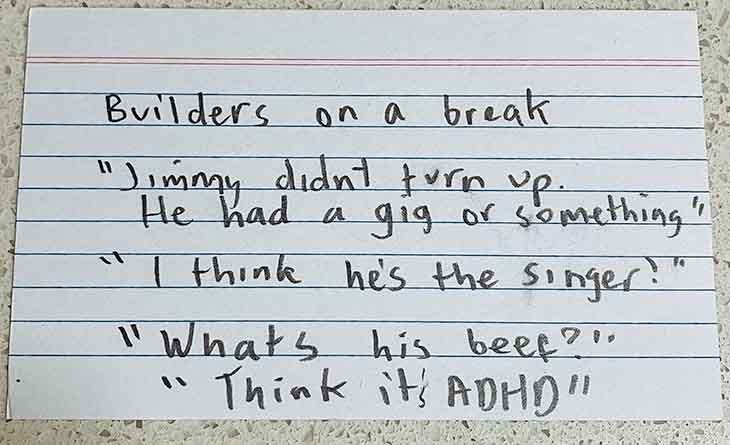 Builders on a break
"Jimmy didnt turn up.
He had a gig or something"
"I think he's the singer?"
"Whats his beef?"
"Think it's ADHD"